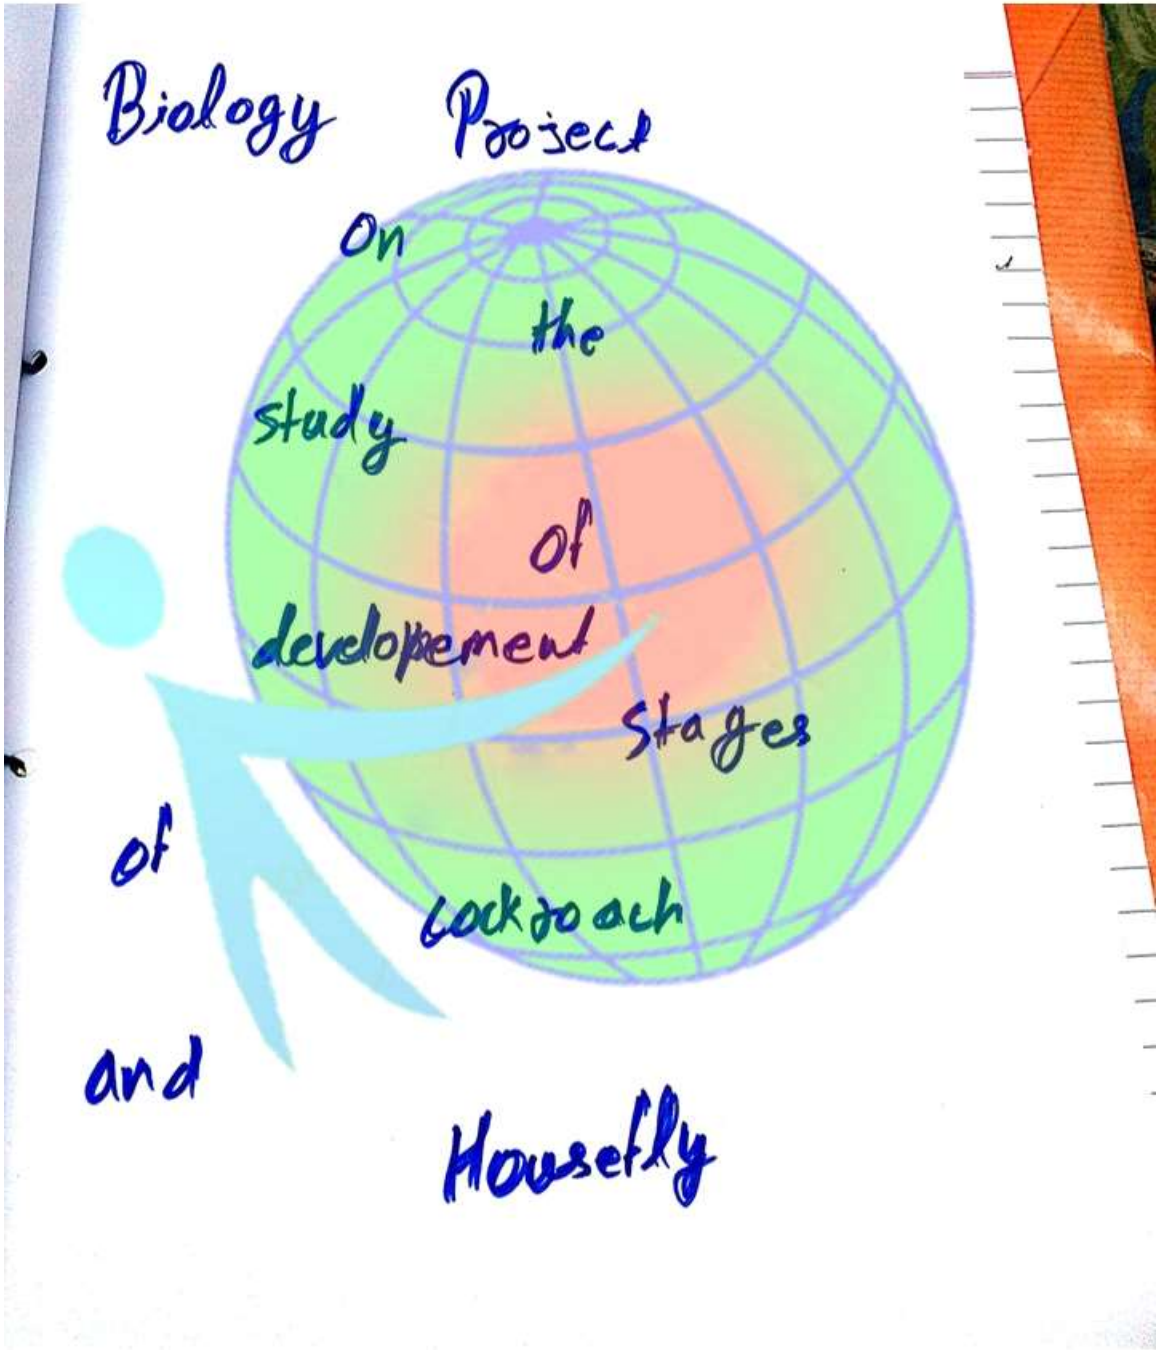 Biology Project
On
the
study
of
developement
stages
of
cockroach
and
Housefly